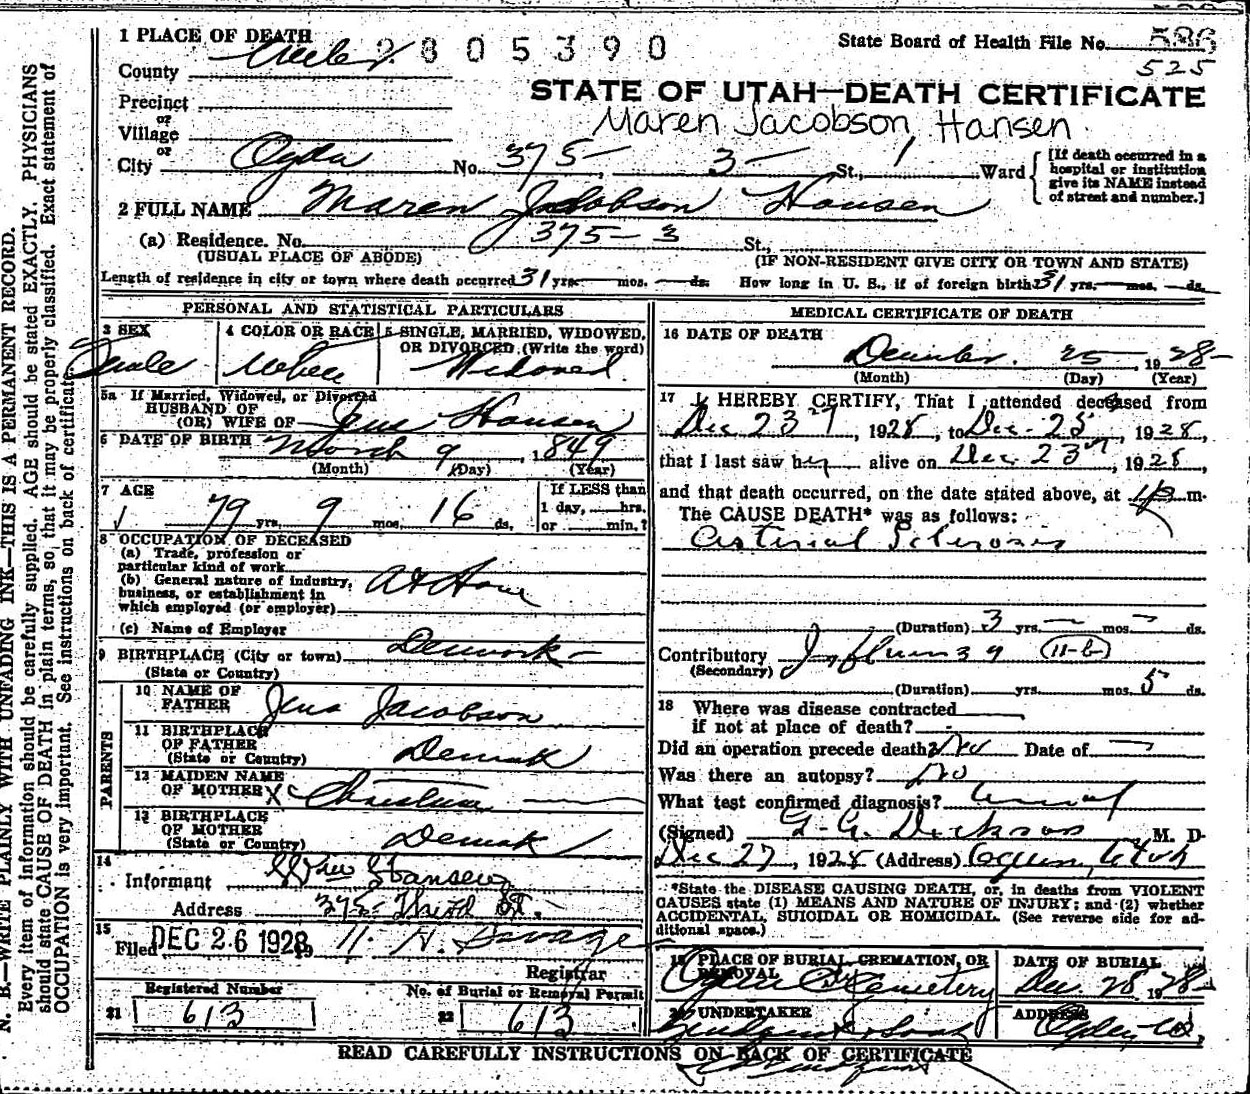 1 PLACE OF DEATH
2805390
State Board of Health File No. 586
525
County Weber
STATE OF UTAH—DEATH CERTIFICATE
Precinct
or
Maren Jacobson, Hansen
Village
or
City Ogden No. 375- 3- St., Ward
[If death occurred in a
hospital or institution
give its NAME instead
of street and number.]
2 FULL NAME Maren Jacobson Hansen
(a) Residence. No. 375-3 St.,
(USUAL PLACE OF ABODE) (IF NON-RESIDENT GIVE CITY OR TOWN AND STATE)
Length of residence in city or town where death occurred 31 yrs. — mos. — ds. How long in U. S., if of foreign birth? 31 yrs. — mos. — ds.
PERSONAL AND STATISTICAL PARTICULARS
3 SEX 4 COLOR OR RACE 5 SINGLE, MARRIED, WIDOWED,
OR DIVORCED (Write the word)
Female White Widowed
5a If Married, Widowed, or Divorced
HUSBAND OF
(OR) WIFE OF Jens Hansen
6 DATE OF BIRTH March 9, 1849
(Month) (Day) (Year)
7 AGE If LESS than
79 yrs. 9 mos. 16 ds. 1 day, hrs.
or min.?
8 OCCUPATION OF DECEASED
(a) Trade, profession or
particular kind of work
(b) General nature of industry,
business, or establishment in At Home
which employed (or employer)
(c) Name of Employer
9 BIRTHPLACE (City or town) Denmark-
(State or Country)
PARENTS
10 NAME OF
FATHER Jens Jacobson
11 BIRTHPLACE
OF FATHER
(State or Country) Denmark
12 MAIDEN NAME
OF MOTHER X Christine —
13 BIRTHPLACE
OF MOTHER
(State or Country) Denmark
14
Informant Hansen
Address 375- Third St.
15
Filed DEC 26 1928, 19 H. Savage
Registrar
Registered Number No. of Burial or Removal Permit
21 613 22 613
MEDICAL CERTIFICATE OF DEATH
16 DATE OF DEATH
December 25 1928-
(Month) (Day) (Year)
17 I HEREBY CERTIFY, That I attended deceased from
Dec 23, 1928, to Dec-25, 1928,
that I last saw her alive on Dec 23, 1928,
and that death occurred, on the date stated above, at m.
The CAUSE DEATH* was as follows:
Arterial Sclerosis
(Duration) 3 yrs. — mos. — ds.
Contributory Influenza (11-b)
(Secondary)
(Duration) yrs. mos. 5 ds.
18 Where was disease contracted
if not at place of death? -
Did an operation precede death? No Date of —
Was there an autopsy? No
What test confirmed diagnosis?
(Signed) Dickson M. D.
Dec 27, 1928 (Address) Ogden, Utah
*State the DISEASE CAUSING DEATH, or, in deaths from VIOLENT
CAUSES state (1) MEANS AND NATURE OF INJURY; and (2) whether
ACCIDENTAL, SUICIDAL OR HOMICIDAL. (See reverse side for ad-
ditional space.)
19 PLACE OF BURIAL, CREMATION, OR
REMOVAL DATE OF BURIAL
Ogden Cemetery Dec. 28 1928-
20 UNDERTAKER ADDRESS
Ogden
READ CAREFULLY INSTRUCTIONS ON BACK OF CERTIFICATE
N. B.—WRITE PLAINLY WITH UNFADING INK—THIS IS A PERMANENT RECORD.
Every item of information should be carefully supplied. AGE should be stated EXACTLY. PHYSICIANS
should state CAUSE OF DEATH in plain terms, so that it may be properly classified. Exact statement of
OCCUPATION is very important. See instructions on back of certificate.